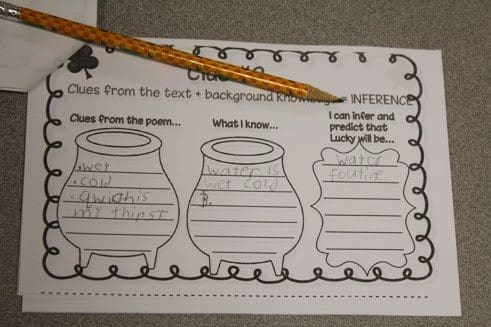 Clues from the text + background knowledge = INFERENCE
Clues from the poem...
.wet
.cold
.qwichis
my thirst
What I know...
water is
wet cold
I can infer and
predict that
Lucky will be...
water
foutine